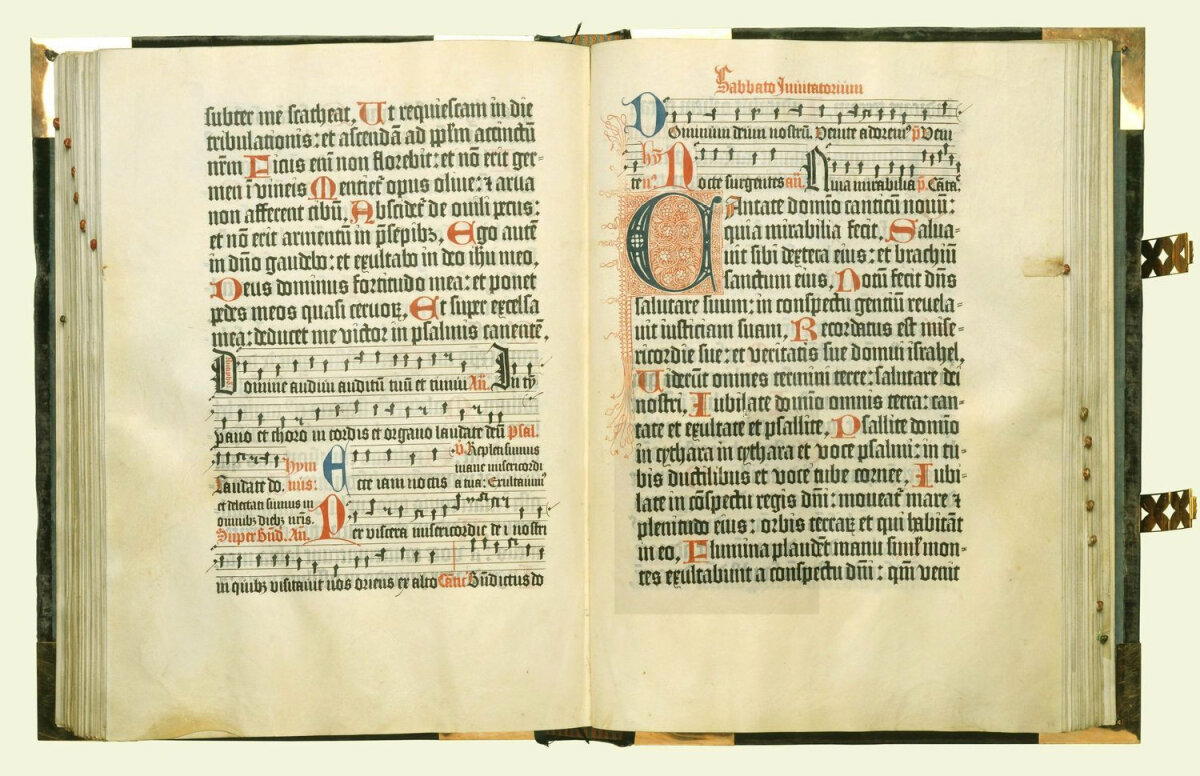 subter me scatheat, Ut requiescam in die
tribulationis: et ascendā ad pplm accinctū
nr̄m Ficus em̄ non florebit: et nō erit ger-
men ī vineis Mentiet᷑ opus oliue: ⁊ arua
non afferent cibū, Abscidet᷑ de ouili pecus:
et nō erit armentū in p̄sepibꝫ, Ego autē
in dn̄o gaudebo: et exultabo in deo ihū meo,
Deus dominus fortitudo mea: et ponet
pedes meos quasi ceruoꝝ, Et super excelsa
mea: deducet me victor in psalmis canentē,
Domine audiui auditū tuū et timui An̄. In tȳ
pano et choro in cordis et organo laudate deū psal.
Laudate do. hym nus: Ecce iam noctis
v̄. Repleti sumus
mane misericordi
a tua: Exultauimꝰ
et delectati sumus in
omnibꝫ diebꝫ nr̄is.
Super Bn̄d. An̄. Per viscera misericordie de i nostri
in quibꝫ visitauit nos oriens ex alto Cān̄c Bn̄dictus do
Sabbato Inuitatorium
Dominum deum nostrū. Venite adoremꝰ p̄ Veni
te hȳ nꝰ. Nocte surgentes an̄. Quia mirabilia p̄. Cāta.
CAntate domīo canticū nouū:
quia mirabilia fecit, Salua-
uit sibi dextera eius: et brachiū
sanctum eius, Notū fecit dn̄s
salutare suum: in conspectu gentiū reuela-
uit iusticiam suam, Recordatus est mise-
ricordie sue: et veritatis sue domui israhel,
Uiderūt omnes termini terre: salutare dei
nostri, Iubilate domīo omnis terra: can-
tate et exultate et psallite, Psallite domīo
in cythara in cythara et voce psalmi: in tu-
bis ductilibus et voce tube cornee, Iubi-
late in cōspectu regis dn̄i: moueat᷑ mare ⁊
plenitudo eius: orbis terraꝝ et qui habitāt
in eo, Flumina plaudēt manu simul mon-
tes exultabunt a conspectu dn̄i: qm̄ venit